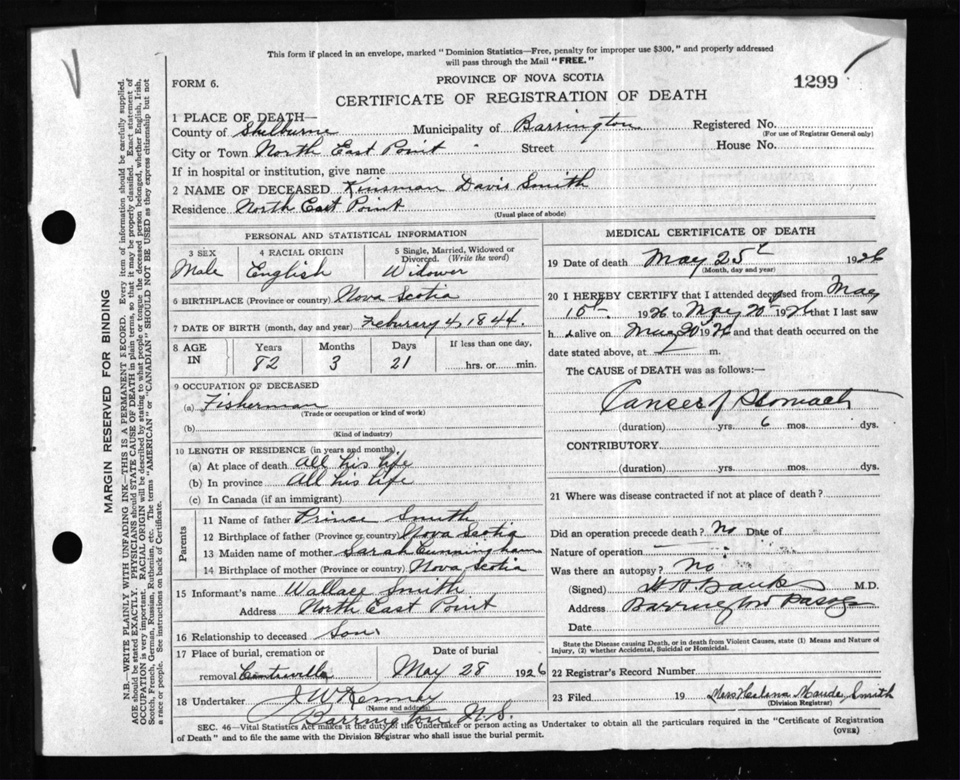 This form if placed in an envelope, marked "Dominion Statistics—Free, penalty for improper use $300," and properly addressed
will pass through the Mail "FREE."
FORM 6.
PROVINCE OF NOVA SCOTIA
1299
CERTIFICATE OF REGISTRATION OF DEATH
1 PLACE OF DEATH—
County of Shelburne Municipality of Barrington Registered No.
(For use of Registrar General only)
City or Town North East Point Street House No.
If in hospital or institution, give name
2 NAME OF DECEASED Kinsman Davis Smith
Residence North East Point
(Usual place of abode)
PERSONAL AND STATISTICAL INFORMATION
3 SEX 4 RACIAL ORIGIN 5 Single, Married, Widowed or
Divorced. (Write the word)
Male English Widower
6 BIRTHPLACE (Province or country) Nova Scotia
7 DATE OF BIRTH (month, day and year) Feburary 4, 1844.
8 AGE IN Years Months Days If less than one day,
82 3 21 hrs. or min.
9 OCCUPATION OF DECEASED
(a) Fisherman
(Trade or occupation or kind of work)
(b)
(Kind of industry)
10 LENGTH OF RESIDENCE (in years and months).
(a) At place of death All his life
(b) In province All his life
(c) In Canada (if an immigrant)
Parents
11 Name of father Prince Smith
12 Birthplace of father (Province or country) Nova Scotia
13 Maiden name of mother Sarah Cunningham
14 Birthplace of mother (Province or country) Nova Scotia
15 Informant's name Wallace Smith
Address North East Point
16 Relationship to deceased Son
17 Place of burial, cremation or Date of burial
removal Centreville May 28 1926
18 Undertaker J W Kenney
(Name and address)
Barrington N.S.
MEDICAL CERTIFICATE OF DEATH
19 Date of death May 25 1926
(Month, day and year)
20 I HEREBY CERTIFY that I attended deceased from May
10th 1926 to May 20th 1926 that I last saw
h alive on May 20 1926 and that death occurred on
date stated above, at m.
The CAUSE of DEATH was as follows:—
Cancer of Stomach
(duration) yrs. 6 mos. dys.
CONTRIBUTORY
(duration) yrs. mos. dys.
21 Where was disease contracted if not at place of death?
Did an operation precede death? No Date of
Nature of operation
Was there an autopsy? No
(Signed) M.D.
Address Barrington Passage
Date
State the Disease causing Death, or in death from Violent Causes, state (1) Means and Nature of
Injury, (2) whether Accidental, Suicidal or Homicidal.
22 Registrar's Record Number
23 Filed 19 Miss Helena Maude Smith
(Division Registrar)
SEC. 46—Vital Statistics Act makes it the duty of the Undertaker or person acting as Undertaker to obtain all the particulars required in the "Certificate of Registration
of Death" and to file the same with the Division Registrar who shall issue the burial permit.
(OVER)
MARGIN RESERVED FOR BINDING
N.B.—WRITE PLAINLY WITH UNFADING INK—THIS IS A PERMANENT RECORD. Every item of information should be carefully supplied.
AGE should be stated EXACTLY. PHYSICIANS should STATE CAUSE OF DEATH in plain terms, so that it may be properly classified. Exact statement of
OCCUPATION is very important. RACIAL ORIGIN will be described by stating to what people or tongue the deceased person belonged, whether English, Irish,
Scotch, French, German, Russian, Ruthenian, etc. The terms "AMERICAN" or "CANADIAN" SHOULD NOT BE USED as they express citizenship but not
a race or people. See instructions on back of Certificate.